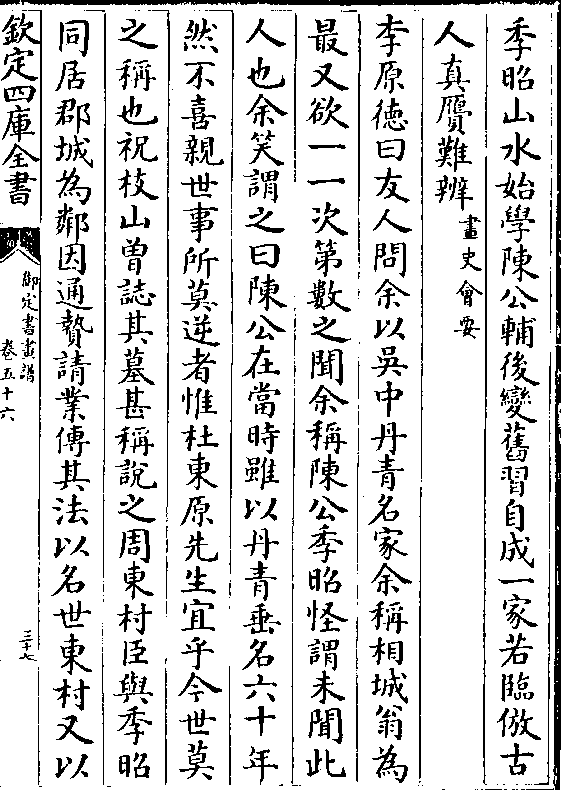 季昭山水始學陳公輔後變舊習自成一家若臨倣古
人真贗難辨畫史會要
李原德曰友人問余以吳中丹青名家余稱相城翁為
最又欲一一次第數之聞余稱陳公季昭怪謂未聞此
人也余笑謂之曰陳公在當時雖以丹青垂名六十年
然不喜親世事所莫逆者惟杜東原先生宜乎今世莫
之稱也祝枝山曽誌其墓甚稱說之周東村臣與季昭
同居郡城為鄰因通贄請業傳其法以名世東村又以
欽定四庫全書
御定書畫譜
卷五十六
三十七